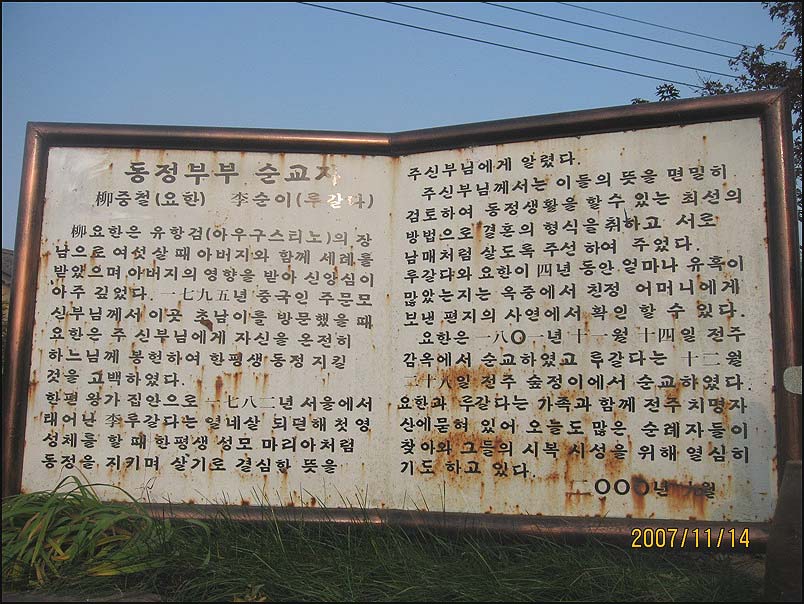 동정부부 순교자
柳중철(요한) 李순이(루갈다)
柳요한은 유항검(아우구스티노)의 장
남으로 여섯 살 때 아버지와 함께 세례를
받았으며 아버지의 영향을 받아 신앙심이
아주 깊었다. 一七九五년 중국인 주문모
신부님께서 이곳 초남이를 방문했을 때
요한은 주 신부님에게 자신을 온전히
하느님께 봉헌하여 한평생 동정 지킬
것을 고백하였다.
한편 왕가 집안으로 一七八二년 서울에서
태어난 李루갈다는 열네살 되던해 첫 영
성체를 할 때 한평생 성모 마리아처럼
동정을 지키며 살기로 결심한 뜻을
주신부님에게 알렸다.
주신부님께서는 이들의 뜻을 면밀히
검토하여 동정생활을 할수 있는 최선의
방법으로 결혼의 형식을 취하고 서로
남매처럼 살도록 주선 하여 주었다.
루갈다와 요한이 四년 동안 얼마나 유혹이
많았는지는 옥중에서 친정 어머니에게
보낸 편지의 사연에서 확인 할 수 있다.
요한은 一八〇一년 十一월 十四일 전주
감옥에서 순교하였고 루갈다는 十二월
二十八일 전주 숲정이에서 순교하였다.
요한과 루갈다는 가족과 함께 전주 치명자
산에묻혀 있어 오늘도 많은 순례자들이
찾아와 그들의 시복 시성을 위해 열심히
기도 하고 있다.
二〇〇〇년 월
2007/11/14